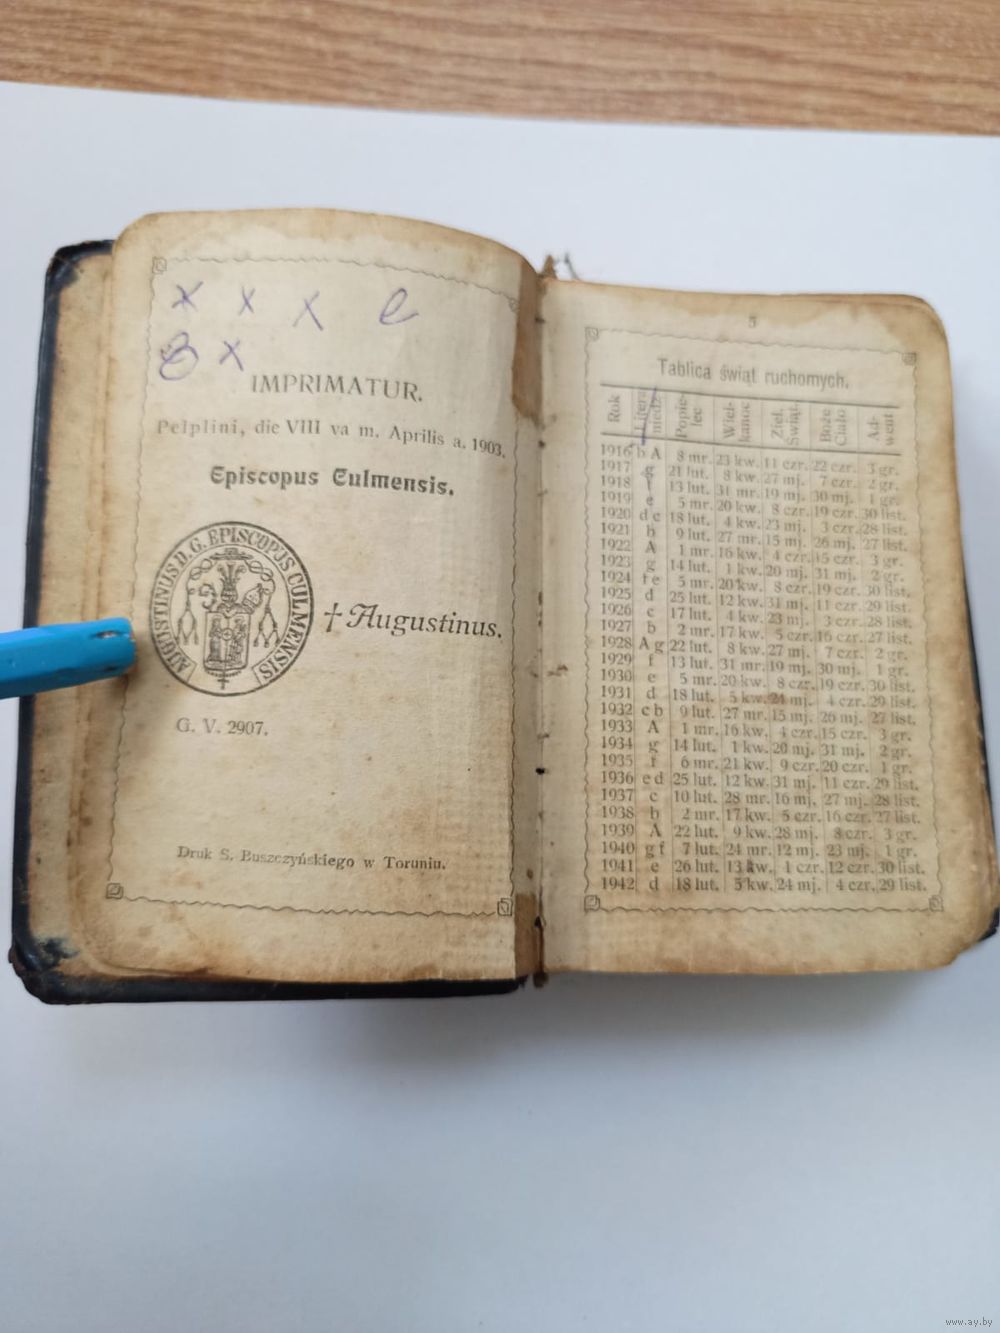 x x x e
8 x
IMPRIMATUR.
Pelplini, die VIII va m. Aprilis a. 1903.
Episcopus Culmensis.
AUGUSTINUS D. G. EPISCOPUS CULMENSIS
† Augustinus.
G. V. 2907.
Druk S. Buszczyńskiego w Toruniu.
5
Tablica świąt ruchomych.
Rok Litera niedz. Popielec Wielkanoc Ziel. Świąt. Boże Ciało Adwent
1916 b A 8 mr. 23 kw. 11 czr. 22 czr. 3 gr.
1917 g 21 lut. 8 kw. 27 mj. 7 czr. 2 gr.
1918 f 13 lut. 31 mr. 19 mj. 30 mj. 1 gr.
1919 e 5 mr. 20 kw. 8 czr. 19 czr. 30 list.
1920 d c 18 lut. 4 kw. 23 mj. 3 czr. 28 list.
1921 b 9 lut. 27 mr. 15 mj. 26 mj. 27 list.
1922 A 1 mr. 16 kw. 4 czr. 15 czr. 3 gr.
1923 g 14 lut. 1 kw. 20 mj. 31 mj. 2 gr.
1924 f e 5 mr. 20 kw. 8 czr. 19 czr. 30 list.
1925 d 25 lut. 12 kw. 31 mj. 11 czr. 29 list.
1926 c 17 lut. 4 kw. 23 mj. 3 czr. 28 list.
1927 b 2 mr. 17 kw. 5 czr. 16 czr. 27 list.
1928 A g 22 lut. 8 kw. 27 mj. 7 czr. 2 gr.
1929 f 13 lut. 31 mr. 19 mj. 30 mj. 1 gr.
1930 e 5 mr. 20 kw. 8 czr. 19 czr. 30 list.
1931 d 18 lut. 5 kw. 24 mj. 4 czr. 29 list.
1932 c b 9 lut. 27 mr. 15 mj. 26 mj. 27 list.
1933 A 1 mr. 16 kw. 4 czr. 15 czr. 3 gr.
1934 g 14 lut. 1 kw. 20 mj. 31 mj. 2 gr.
1935 f 6 mr. 21 kw. 9 czr. 20 czr. 1 gr.
1936 e d 25 lut. 12 kw. 31 mj. 11 czr. 29 list.
1937 c 10 lut. 28 mr. 16 mj. 27 mj. 28 list.
1938 b 2 mr. 17 kw. 5 czr. 16 czr. 27 list.
1939 A 22 lut. 9 kw. 28 mj. 8 czr. 3 gr.
1940 g f 7 lut. 24 mr. 12 mj. 23 mj. 1 gr.
1941 e 26 lut. 13 kw. 1 czr. 12 czr. 30 list.
1942 d 18 lut. 5 kw. 24 mj. 4 czr. 29 list.
www.ay.by